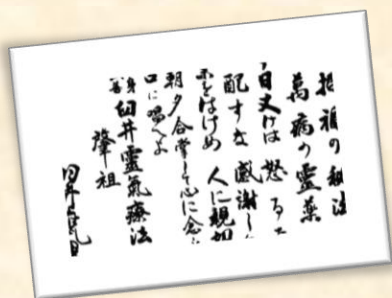 招福の秘法
萬病の霊薬
日丈けは 怒るな
配すな 感謝し
をはけめ 人に親切
朝夕合掌して心に念
口に唱へよ
身善 臼井靈氣療法
肇祖
臼井